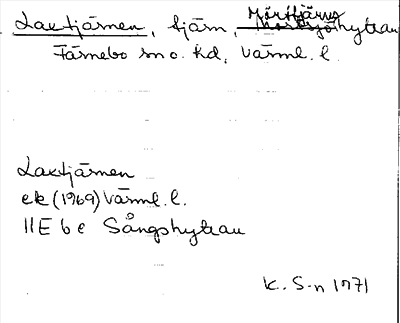 Laxtjärnen, tjärn, Mörttjärns hyttan
Färnebo sn o. hd, Värml. l.
Laxtjärnen
ek (1969) Värml. l.
11E 6e Sångshyttan
K. S-n 1971